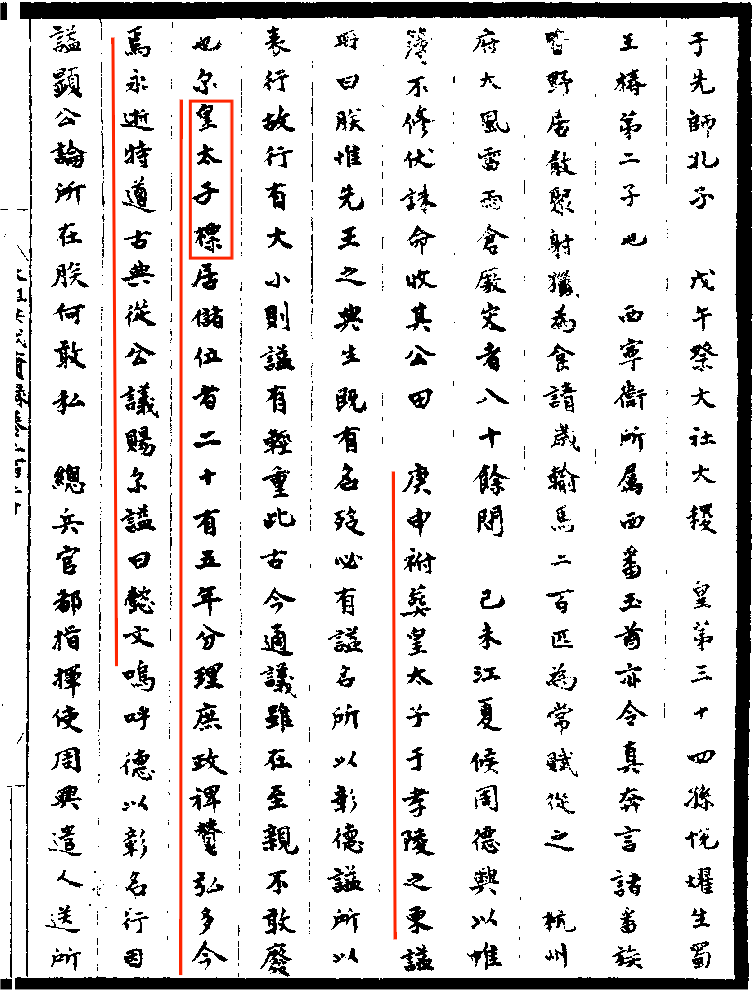 于先師孔子　戊午祭大社大稷　皇第三十四孫悅燿生蜀
王椿第二子也　西寧衛所屬西番土酋亦令真奔言諸番族
皆野居散聚射獵為食請歲輸馬二百匹為常賦從之　杭州
府大風雷雨倉廒災者八十餘間　己未江夏侯周德興以帷
簿不修伏誅命收其公田　庚申祔葬皇太子于孝陵之東諡
冊曰朕惟先王之典生既有名歿必有諡名所以彰德諡所以
表行故行有大小則諡有輕重此古今通議雖在至親不敢廢
也尔皇太子標居儲位者二十有五年分理庶政裨贊弘多今
焉永逝特遵古典從公議賜尔諡曰懿文嗚呼德以彰名行因
諡顯公論所在朕何敢私　總兵官都指揮使周興遣人送所